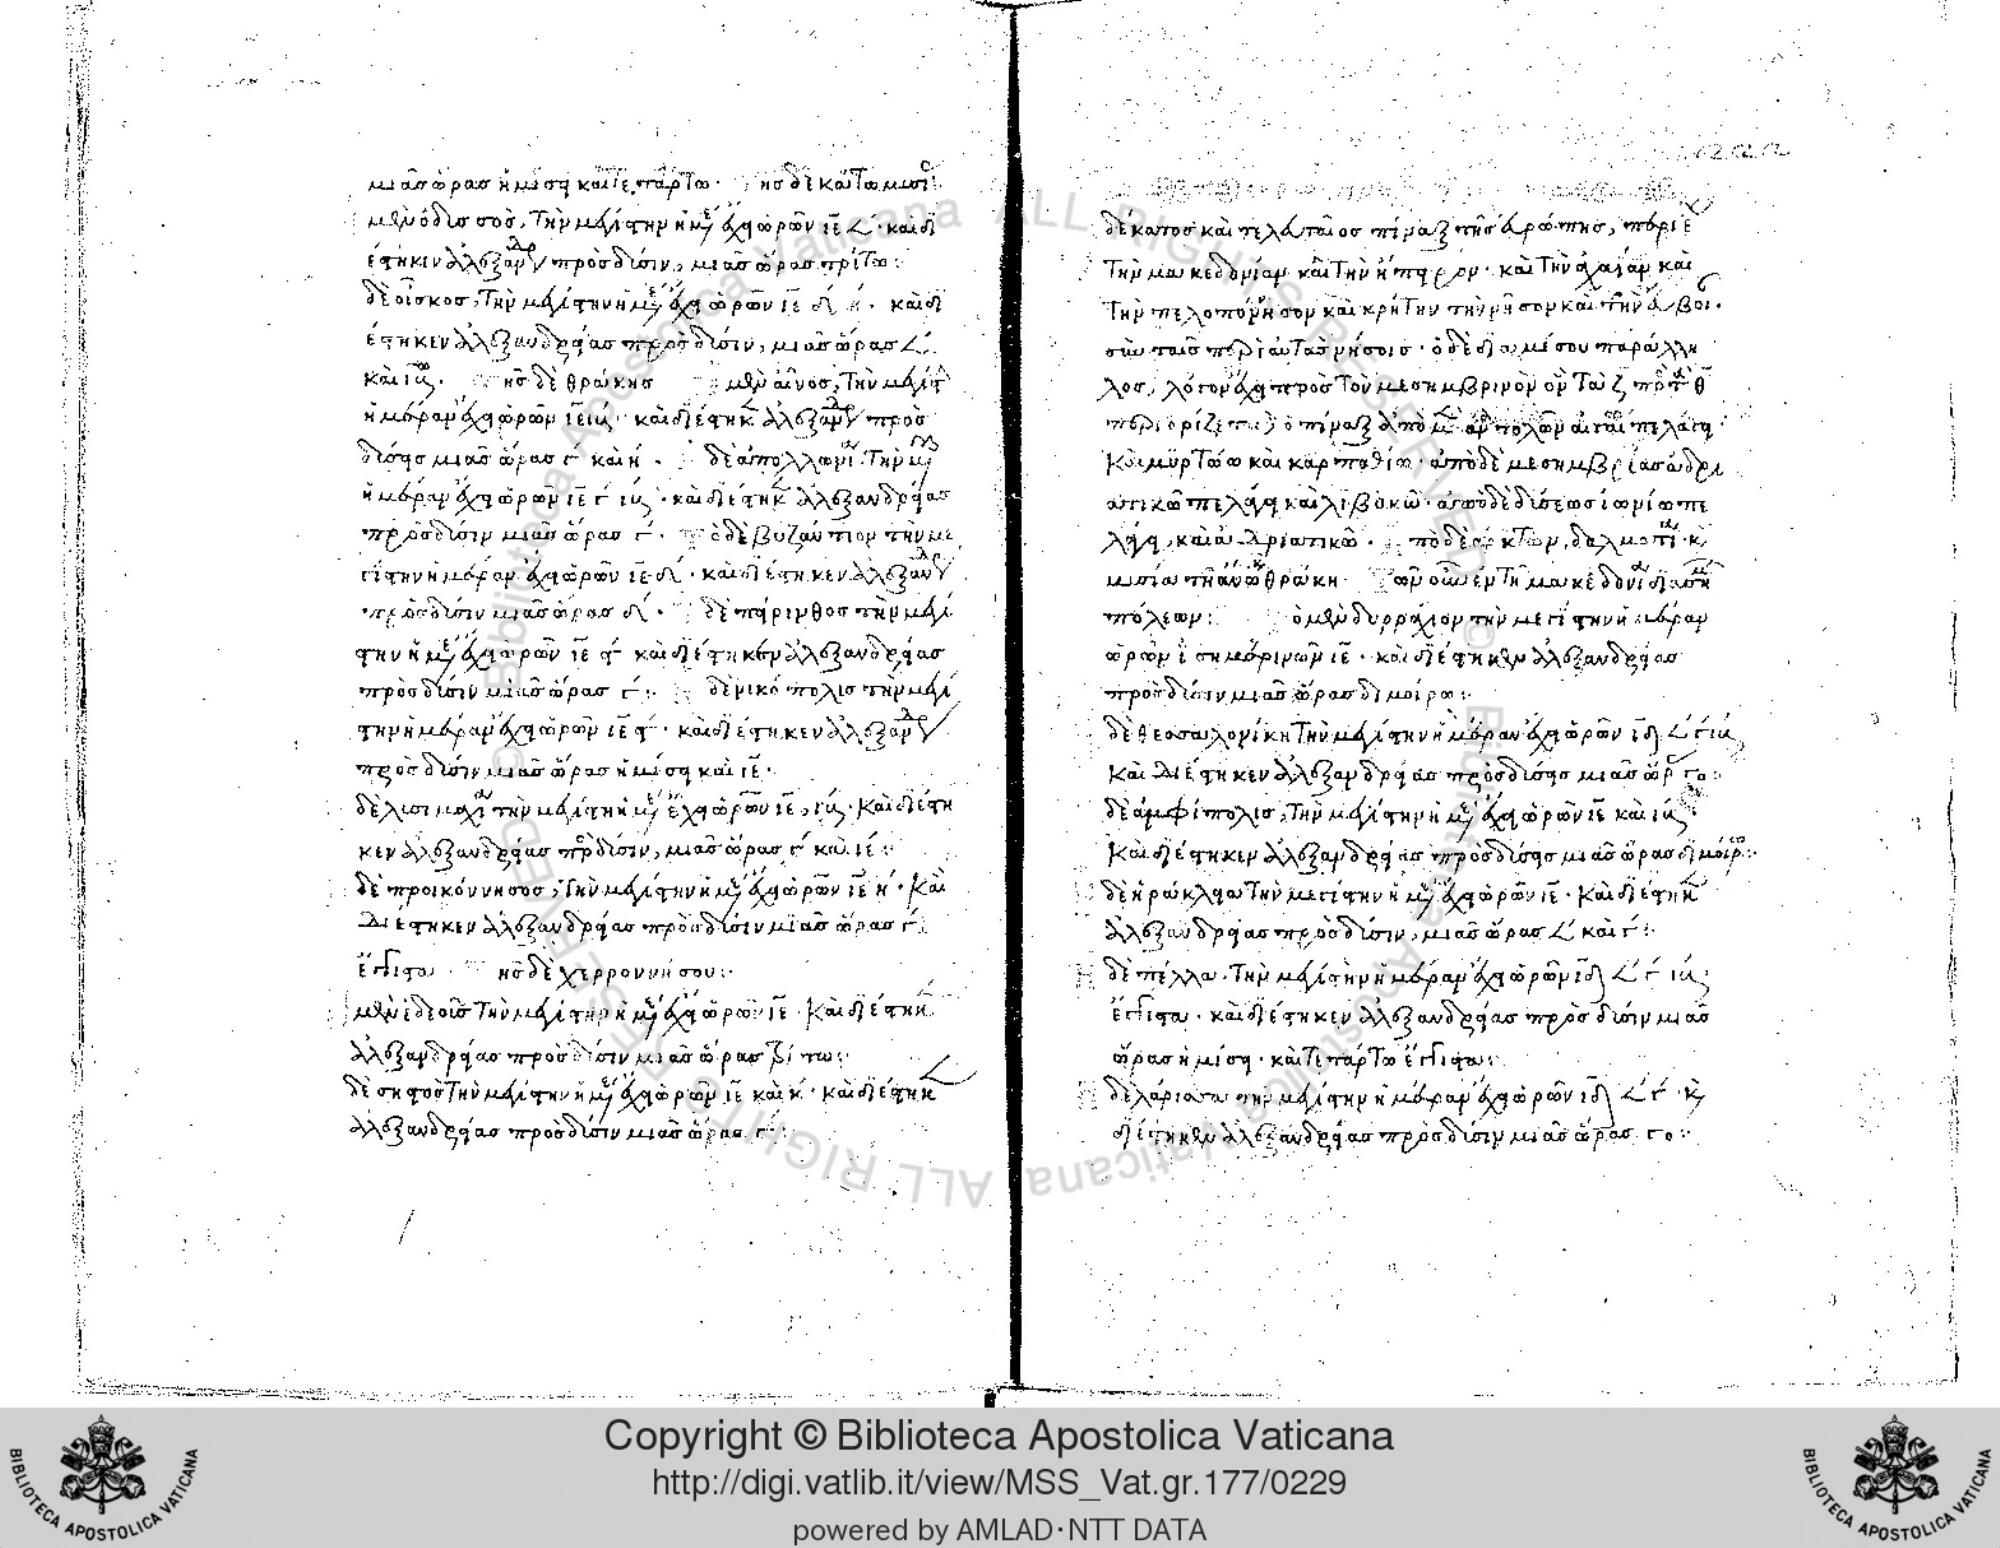 μιᾶς ὥρας ἡμίσει καὶ τετάρτω· ης δὲ κάτω μυσί
μὲν ὀδισσὸς, τὴν μεγίστην ἡμέ ἔχει ὡρῶν ιε 𐅵· καὶ δι
έστηκεν ἀλεξανδρ πρὸς δύσιν, μιᾶς ὥρας τρίτω:
δὲ οἶσκος, τὴν μεγίστην ἡμέ ἔχει ὡρῶν ιε δ η· καὶ δι
έστηκεν ἀλεξανδρείας πρὸς δύσιν, μιᾶς ὥρας 𐅵
καὶ ις. ῆς δὲ θράκης μὲν αἶνος, τὴν μεγίστ
ἡμέραν ἔχει ὡρῶν ιε ις· καὶ διέστηκ ἀλεξανδρ πρὸς
δύσεις μιᾶς ὥρας γ καὶ η. δὲ ἀπολλωνί τὴν μεγ
ἡμέραν ἔχει ὡρῶν ιε γ ις· καὶ διέστηκ ἀλεξανδρείας
πρὸς δύσιν μιᾶς ὥρας γ. τὸ δὲ βυζάντιον τὴν με
γίστην ἡμέραν ἔχει ὡρῶν ιε δ· καὶ διέστηκεν ἀλεξανδρ
πρὸς δύσιν μιᾶς ὥρας δ. δὲ πέρινθος τὴν μεγί
στην ἡμέ ἔχει ὡρῶν ιε καὶ διέστηκεν ἀλεξανδρείας
πρὸς δύσιν μιᾶς ὥρας γ: δὲ νικόπολις τὴν μεγί
στην ἡμέραν ἔχει ὡρῶν ιε· καὶ διέστηκεν ἀλεξανδρ
πρὸς δύσιν μιᾶς ὥρας ἡμίσει καὶ ιε·
δὲ λισιμαχί τὴν μεγίστην ἡμέ ἔχει ὡρῶν ιε, ις· καὶ διέστη
κεν ἀλεξανδρείας πρὸς δύσιν, μιᾶς ὥρας γ καὶ ιε:
δὲ προικόννησος, τὴν μεγίστην ἡμέ ἔχει ὡρῶν ιε η· καὶ
διέστηκεν ἀλεξανδρείας πρὸς δύσιν μιᾶς ὥρας γ
ἔγγιστα. ῆς δὲ χερροννήσου:
μὲν ἐλεοῦς τὴν μεγίστην ἡμέ ἔχει ὡρῶν ιε· καὶ διέστηκ
ἀλεξανδρείας πρὸς δύσιν μιᾶς ὥρας τρίτω:
δὲ σηστὸς τὴν μεγίστην ἡμέ ἔχει ὡρῶν ιε καὶ κ· καὶ διέστηκ
ἀλεξανδρείας πρὸς δύσιν μιᾶς ὥρας γ:
δέκατος καὶ τελευταῖος πίναξ τῆς εὐρώπης, περιέ
τὴν μακεδονίαν καὶ τὴν ἤπειρον· καὶ τὴν ἀχαίαν καὶ
τὴν πελοπόννησον καὶ κρήτην τὴν νῆσον καὶ τὴν εὔβοι·
σὺν ταῖς περὶ αὐτὰς νήσοις· ὁ δὲ διὰ μέσου παράλλη
λος, λόγον ἔχει πρὸς τὸν μεσημβρινὸν ὃν τὰ ζ πρὸς τὰ θ
περιορίζεται ὁ πίναξ ἀπὸ μὲν ἀνατολῶν αἰγαί πελάγει
καὶ μυρτώω καὶ καρπαθίω· ἀπὸ δὲ μεσημβρίας ἀδρι
ατικῶ πελάγει καὶ λιβυκῶ· ἀπὸ δὲ δύσεως ἰωνίω πε
λάγει, καὶ ἀδριατικῶ. πὸ δὲ ἄρκτων, δαλματί κ
μυσία τῆ ἄνω θράκη. ῶν οὖν ἐν τῆ μακεδονί διασή
πόλεων: ὁ μὲν δυρράχιον τὴν μεγίστην ἡμέραν
ὡρῶν ἰσημερινῶν ιε· καὶ διέστηκεν ἀλεξανδρείας
πρὸς δύσιν μιᾶς ὥρας διμοίρω:
δὲ θεσσαλονίκη τὴν μεγίστην ἡμέραν ἔχει ὡρῶν ιδ 𐅵 γ ις
καὶ διέστηκεν ἀλεξανδρείας πρὸς δύσεις μιᾶς ὥρ γο:
δὲ ἀμφίπολις, τὴν μεγίστην ἡμέ ἔχει ὡρῶν ιε καὶ ις·
καὶ διέστηκεν ἀλεξανδρείας πρὸς δύσεις μιᾶς ὥρας διμοίρω:
δὲ ἡράκλεια τὴν μεγίστην ἡμέ ἔχει ὡρῶν ιε· καὶ διέστηκ
ἀλεξανδρείας πρὸς δύσιν, μιᾶς ὥρας 𐅵 καὶ γ:
δὲ πέλλα· τὴν μεγίστην ἡμέραν ἔχει ὡρῶν ιδ 𐅵 γ ις
ἔγγιστα· καὶ διέστηκεν ἀλεξανδρείας πρὸς δύσιν μιᾶς
ὥρας ἡμίσει· καὶ τετάρτω ἔγγιστα:
δὲ λάρισσα τὴν μεγίστην ἡμέραν ἔχει ὡρῶν ιδ 𐅵 γ· κ
διέστηκεν ἀλεξανδρείας πρὸς δύσιν μιᾶς ὥρας γο:
Copyright © Biblioteca Apostolica Vaticana
http://digi.vatlib.it/view/MSS_Vat.gr.177/0229
powered by AMLAD·NTT DATA
BIBLIOTECA APOSTOLICA VATICANA
BIBLIOTECA APOSTOLICA VATICANA